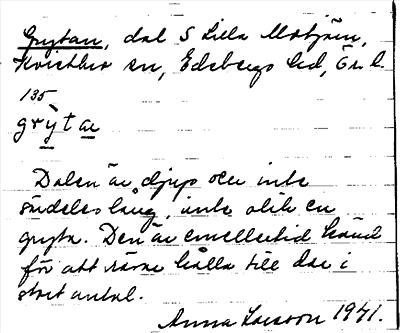 Grytan, dal S Lilla Motjärn,
Kvistbro sn, Edsbergs hd, Ör. l.
135
grỳta
Dalen är djup och inte
särdeles lång, inte olik en
gryta. Den är emellertid känd
för att rävar hålla till där i
stort antal.
Anna Larsson 1941.